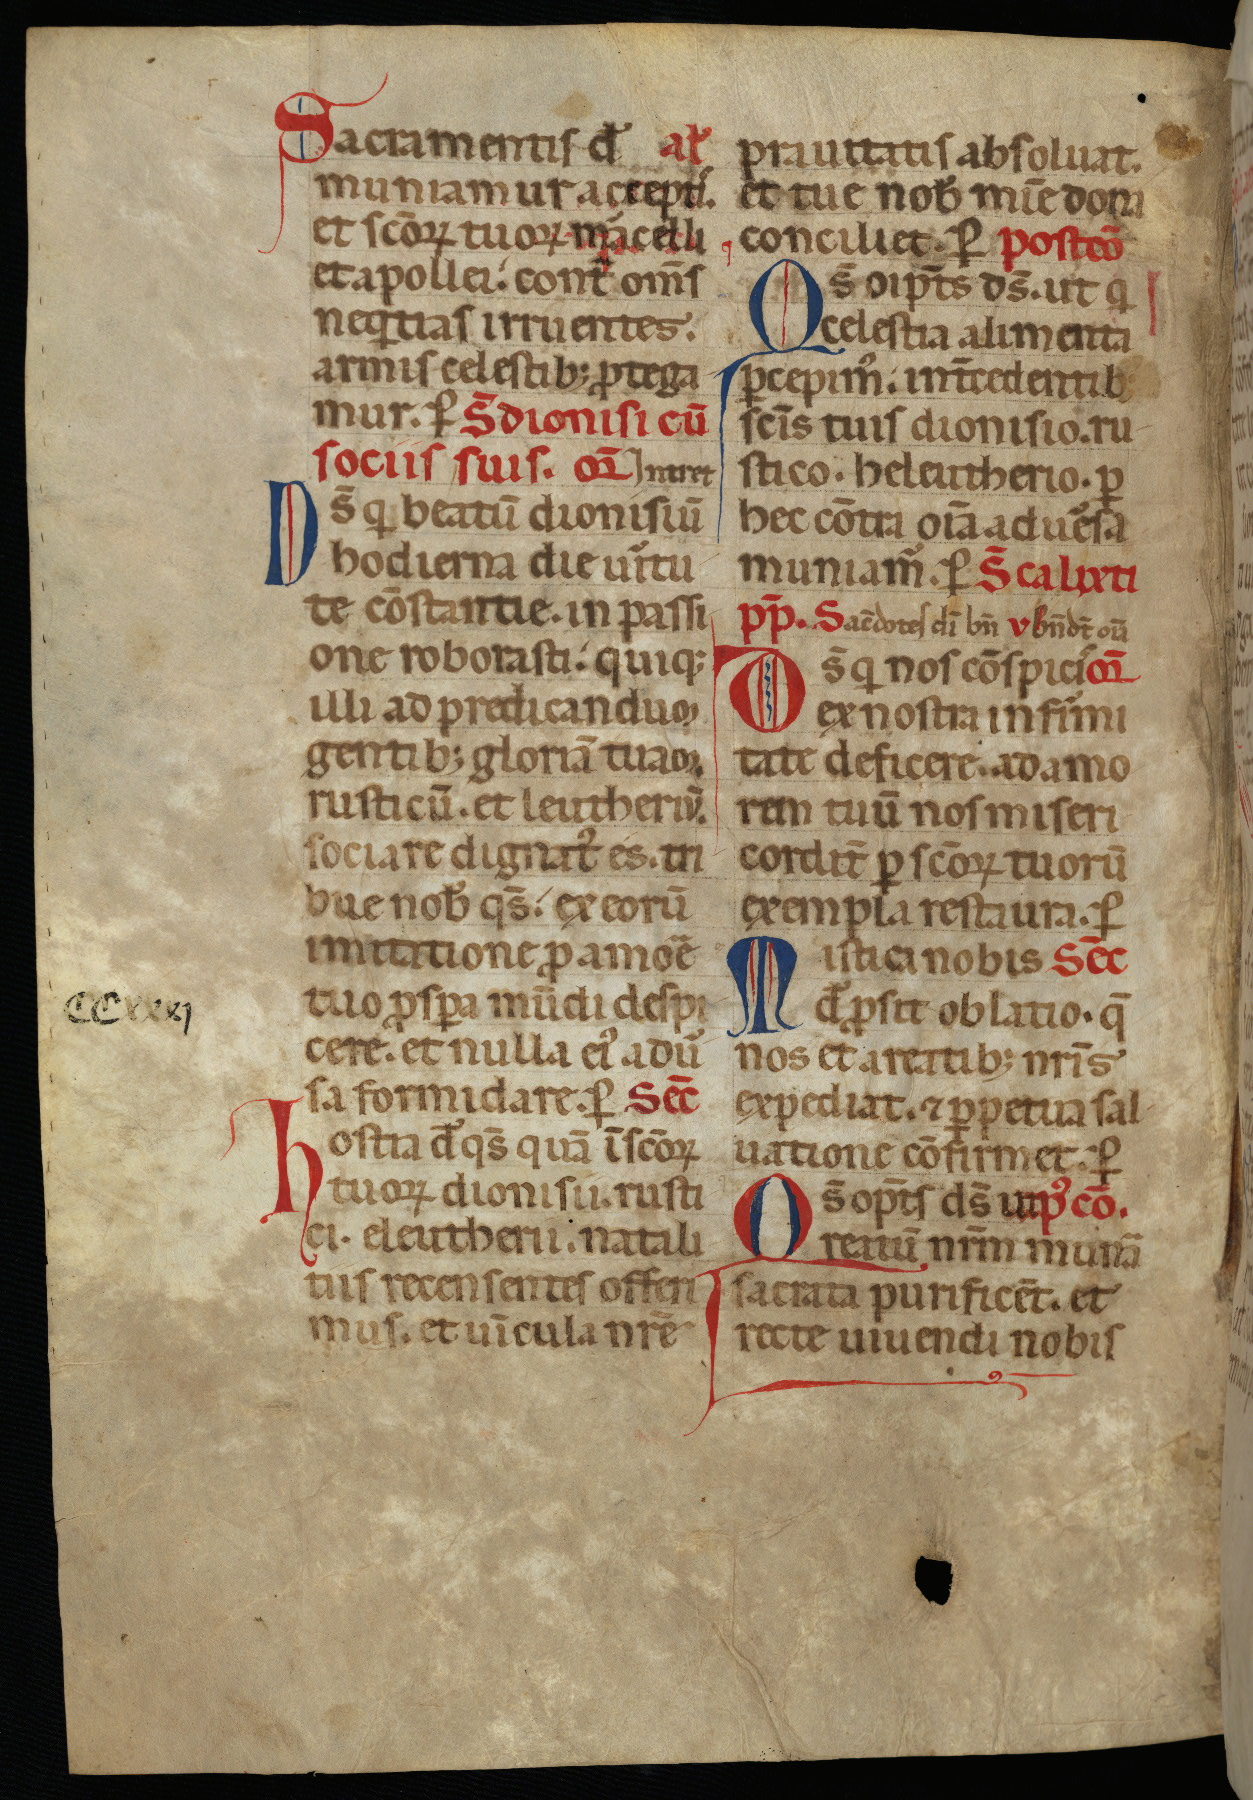 Sacramentis d̅ al̅
muniamur accepti.
et sc̅oꝝ tuoꝝ marcelli
et apollei. cont̅ om̅s
neqͥtias irruentes.
armis celestib; ꝓtega
mur. ꝑ S̅ dionisi cu̅
sociis suis. or̅ Intret
Ds̅ qͥ beatu̅ dionisiu̅
hodierna die uirtu
te co̅stantie. in passi
one roborasti. quiqꝫ
illi ad predicanduꝫ
gentib; gloria̅ tuaꝫ.
rusticu̅. et leutheriu̅.
sociare dignatꝰ es. tri
bue nob̅ qs̅. ex eoru̅
imitatione ꝓ amor̅e
tuo ꝓsꝑa mu̅di despi
cere. et nulla eiꝰ adu̅
sa formidare. ꝑ Sec̅
hostia d̅ qs̅ qua̅ i̅ sc̅oꝝ
tuoꝝ dionisii. rusti
ci. eleutherii. natali
tiis recensentes offeri
mus. et ui̅cula nr̅e
CCxxxj
prauitatis absoluat.
et tue nob̅ mi̅e dona
conciliet. ꝑ postco̅
Qs̅ oip̅ts ds̅. ut qͥ
celestia alimenta
ꝑcepimꝰ. int̅cedentib;
sc̅is tuis dionisio. ru
stico. heleutherio. ꝑ
hec co̅tra oi̅a aduersa
muniamꝰ. ꝑ S̅ calixti
pp̅. Sac̅dotes di̅ bn̅ v bn̅d̅t om̅
Ds̅ qͥ nos co̅spicis or̅
ex nostra infirmi
tate deficere. ad amo
rem tuu̅ nos miseri
cordit̅ ꝑ sc̅oꝝ tuoru̅
exempla restaura. ꝑ
Mistica nobis Sec̅
d̅ ꝓsit oblatio. q̅
nos et a reatib; nr̅is
expediat. ⁊ ꝑpetua sal
uatione co̅firmet. ꝑ
Qs̅ op̅ts ds̅ ut pꝰco̅.
reatu̅ nr̅m mun̅a
sacrata purifice̅t. et
recte uiuendi nobis